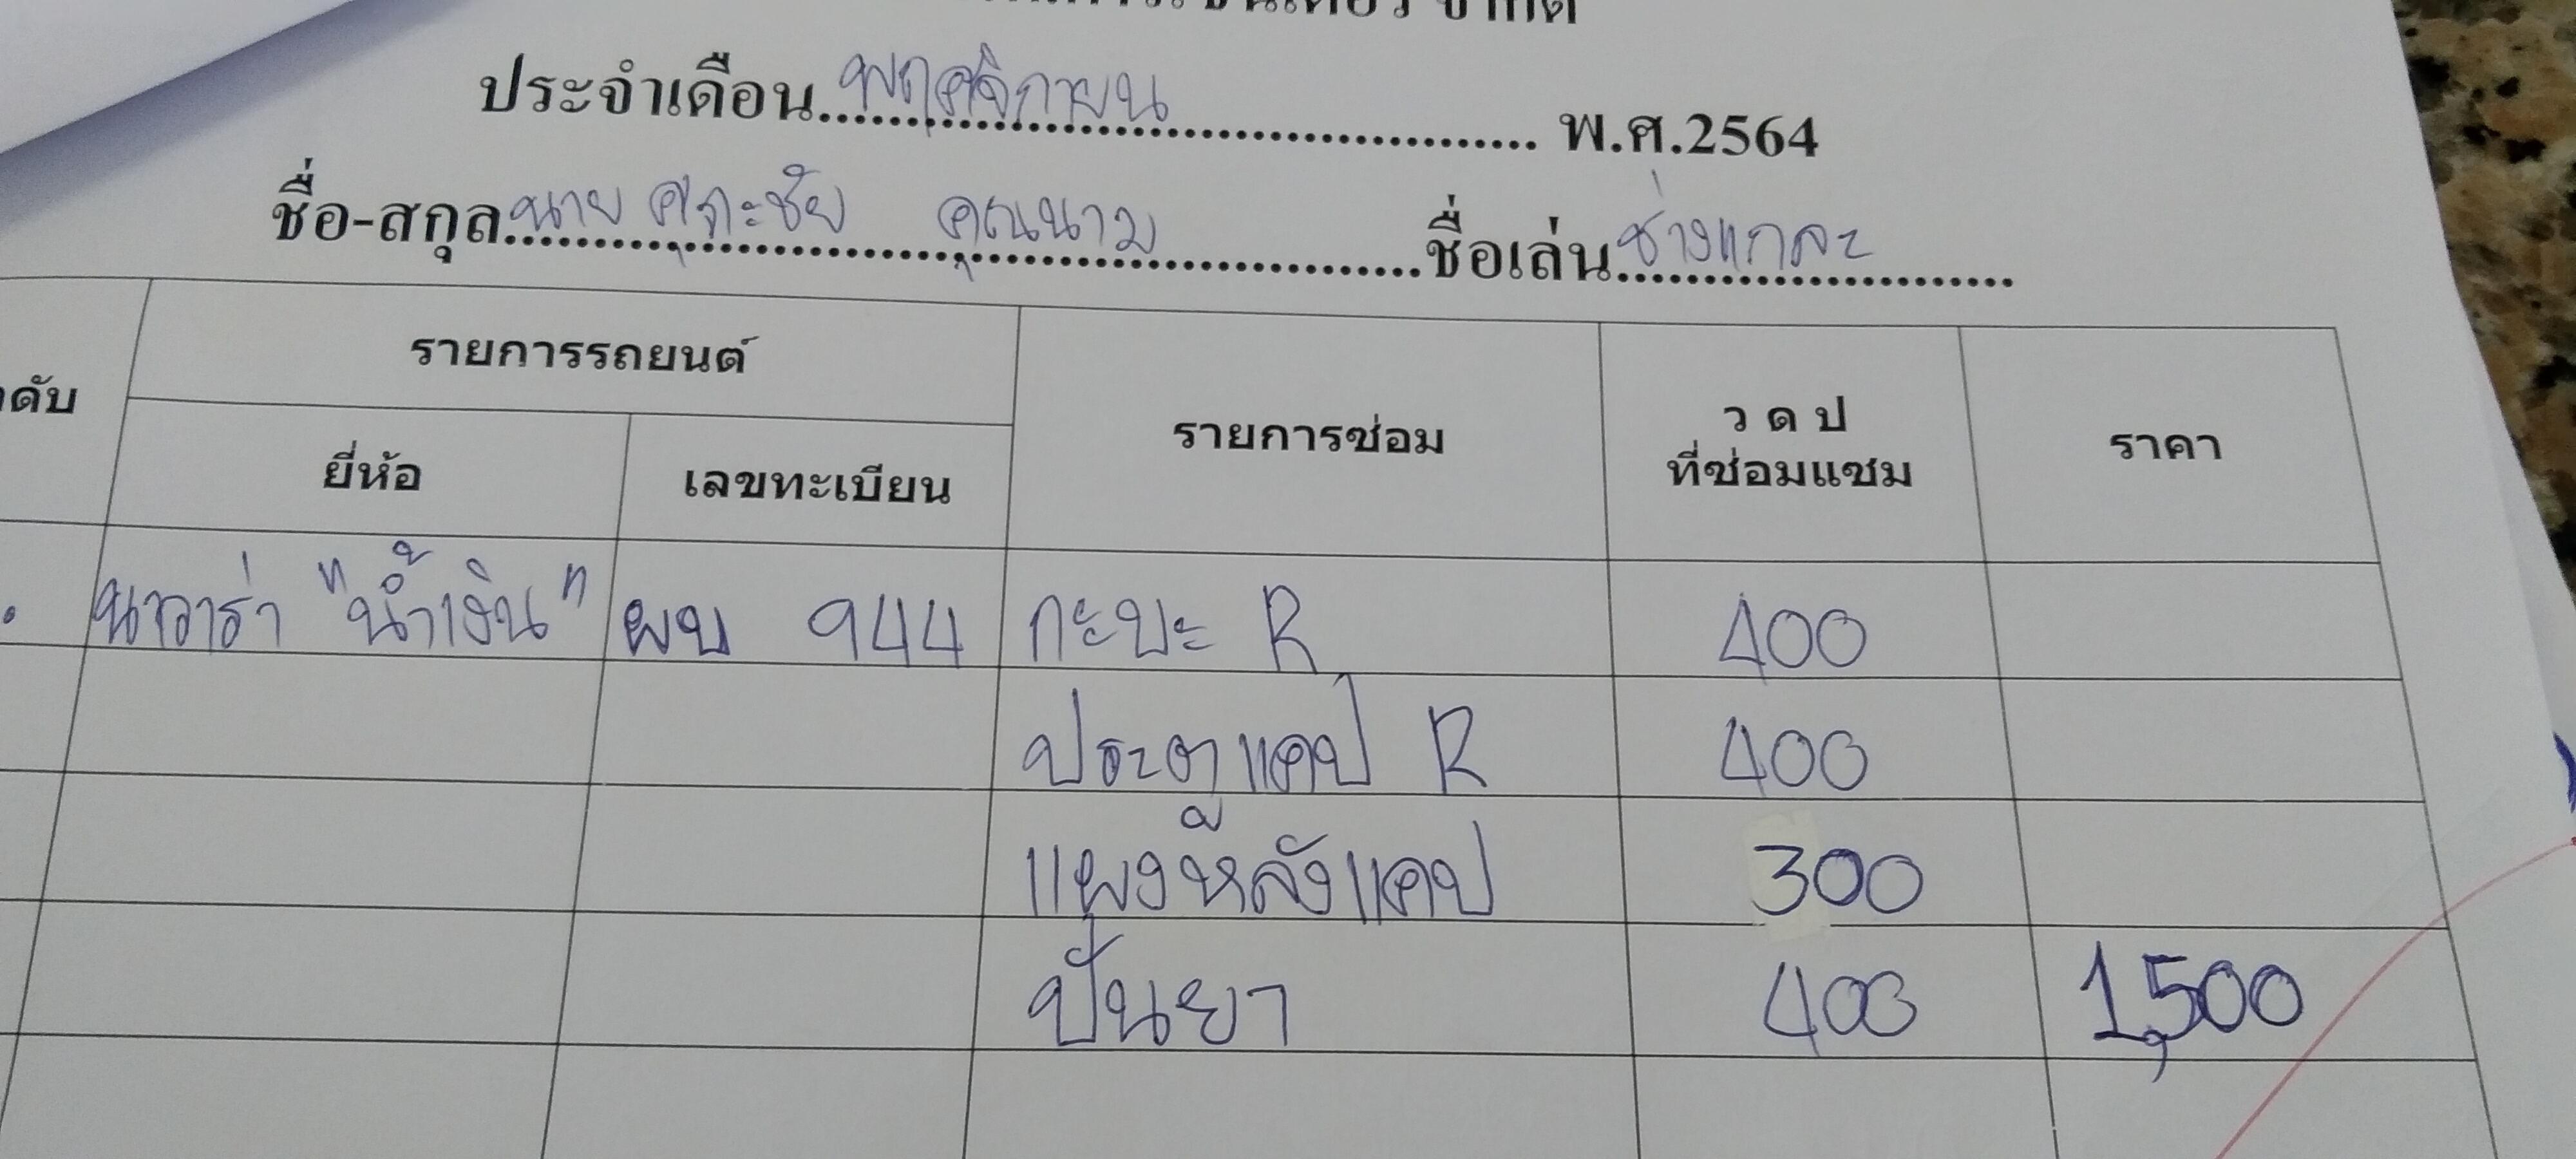 จำกัด
ประจำเดือน พฤศจิกายน พ.ศ.2564
ชื่อ-สกุล นาย คุณนาม ชื่อเล่น ช่างแกละ
ดับ รายการรถยนต์ รายการซ่อม ว ด ป ที่ซ่อมแซม ราคา
ยี่ห้อ เลขทะเบียน
นาวาร่า "น้ำเงิน" ผบ 944 กะบะ R 400
ประตูแคป R 400
แผงหลังแคป 300
ปั่นยา 400 1,500